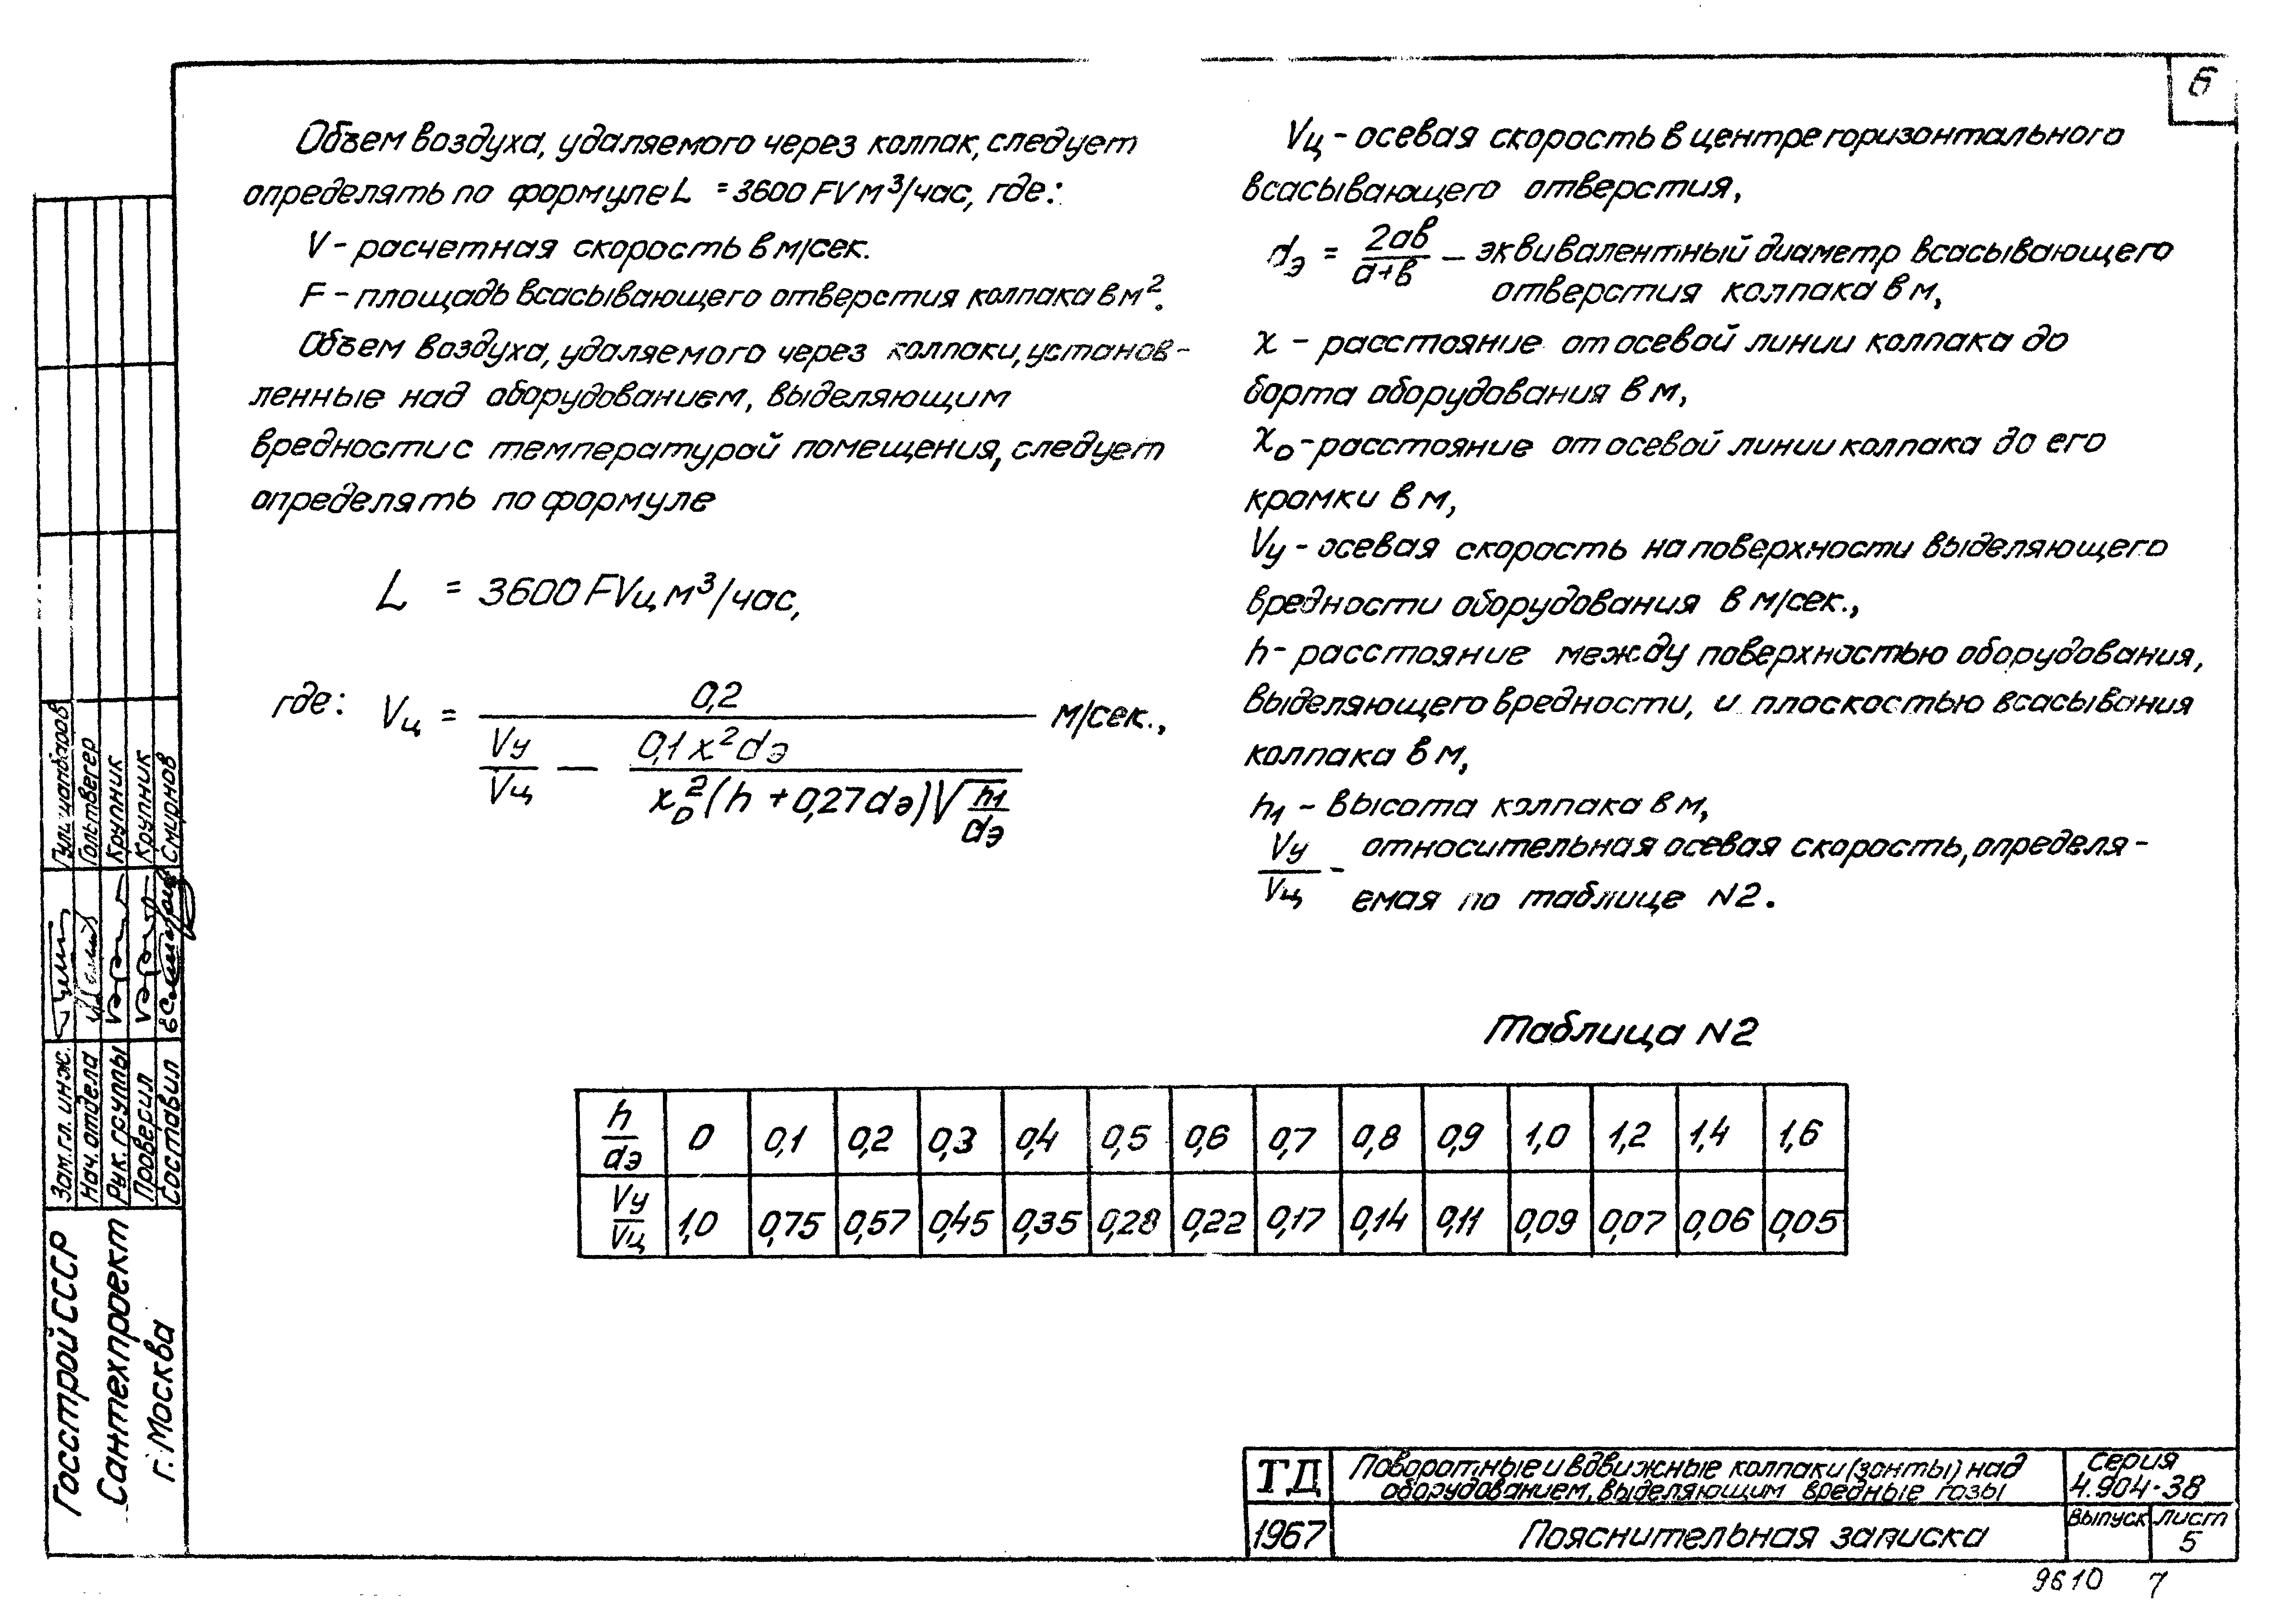 6
Объем воздуха, удаляемого через колпак, следует
определять по формуле L = 3600 FV м³/час, где:
V - расчетная скорость в м/сек.
F - площадь всасывающего отверстия колпака в м².
Объем воздуха, удаляемого через колпаки, установ-
ленные над оборудованием, выделяющим
вредности с температурой помещения, следует
определять по формуле
L = 3600 FVц м³/час,
где: Vц = 0,2 / (Vу/Vц − 0,1 x² dэ / (x₀² (h + 0,27 dэ) √(h₁/dэ))) м/сек.,
Vц - осевая скорость в центре горизонтального
всасывающего отверстия,
dэ = 2ав/(а+в) — эквивалентный диаметр всасывающего
отверстия колпака в м,
x - расстояние от осевой линии колпака до
борта оборудования в м,
x₀ - расстояние от осевой линии колпака до его
кромки в м,
Vу - осевая скорость на поверхности выделяющего
вредности оборудования в м/сек.,
h - расстояние между поверхностью оборудования,
выделяющего вредности, и плоскостью всасывания
колпака в м,
h₁ - высота колпака в м,
Vу/Vц - относительная осевая скорость, определя-
емая по таблице N2.
Таблица N2
h/dэ 0 0,1 0,2 0,3 0,4 0,5 0,6 0,7 0,8 0,9 1,0 1,2 1,4 1,6
Vу/Vц 1,0 0,75 0,57 0,45 0,35 0,28 0,22 0,17 0,14 0,11 0,09 0,07 0,06 0,05
Госстрой СССР
Сантехпроект
г. Москва
Зам. гл. инж.
Нач. отдела Гольтвегер
Рук. группы Крупник
Проверил Крупник
Составил Смирнов
ТД
Поворотные и вдвижные колпаки (зонты) над
оборудованием, выделяющим вредные газы
Серия
4.904-38
1967
Пояснительная записка
Выпуск
Лист
5
9610 7